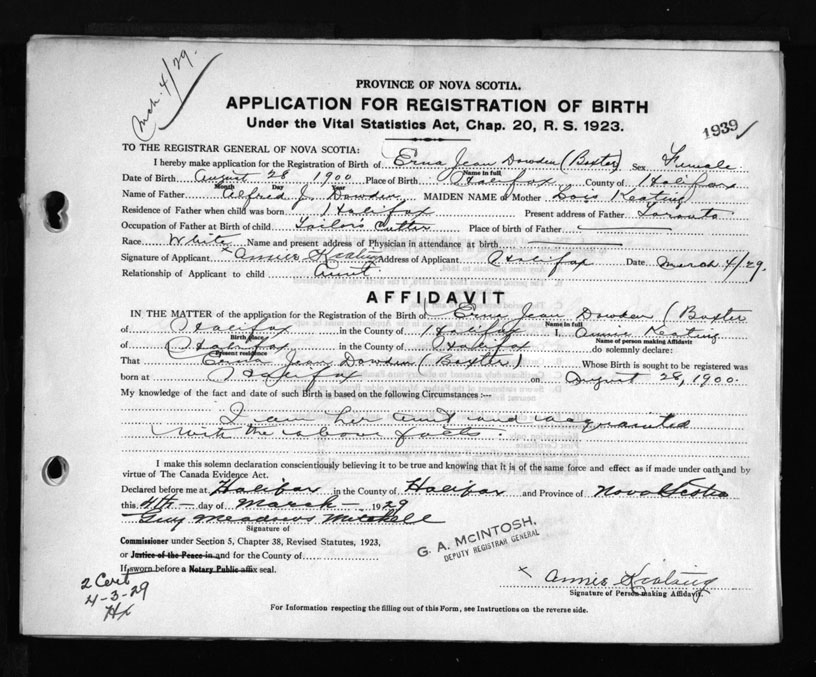 Mch. 4/29.
PROVINCE OF NOVA SCOTIA.
APPLICATION FOR REGISTRATION OF BIRTH
Under the Vital Statistics Act, Chap. 20, R. S. 1923.
1939
TO THE REGISTRAR GENERAL OF NOVA SCOTIA:
I hereby make application for the Registration of Birth of Erna Jean Dowden (Baxter) Sex Female
Name in full
Date of Birth August 28 1900 Place of Birth Halifax County of Halifax
Month Day Year
Name of Father Alfred J. Dowden MAIDEN NAME of Mother Lois Keating
Residence of Father when child was born Halifax Present address of Father Toronto
Occupation of Father at Birth of child Tailors Cutter Place of birth of Father
Race White Name and present address of Physician in attendance at birth
Signature of Applicant x Annie Keating Address of Applicant Halifax Date March 4/29.
Relationship of Applicant to child Aunt
AFFIDAVIT
IN THE MATTER of the application for the Registration of the Birth of Erna Jean Dowden (Baxter
Name in full
of Halifax in the County of Halifax I, Annie Keating
Birth place Name of person making Affidavit
of Halifax in the County of Halifax do solemnly declare:
Present residence
That Erna Jean Dowden (Baxter) Whose Birth is sought to be registered was
born at Halifax on August 28, 1900.
My knowledge of the fact and date of such Birth is based on the following Circumstances:—
I am her aunt and acquainted
with the above facts.
I make this solemn declaration conscientiously believing it to be true and knowing that it is of the same force and effect as if made under oath and by
virtue of The Canada Evidence Act.
Declared before me at Halifax in the County of Halifax and Province of Nova Scotia
this 4th day of March 1929
Guy Meadows Mitchell
Signature of
Commissioner under Section 5, Chapter 38, Revised Statutes, 1923,
or Justice of the Peace in and for the County of
If sworn before a Notary Public affix seal.
G. A. McINTOSH,
DEPUTY REGISTRAR GENERAL
2 Cert
4-3-29
Hx
x Annie Keating
Signature of Person making Affidavit.
For Information respecting the filling out of this Form, see Instructions on the reverse side.